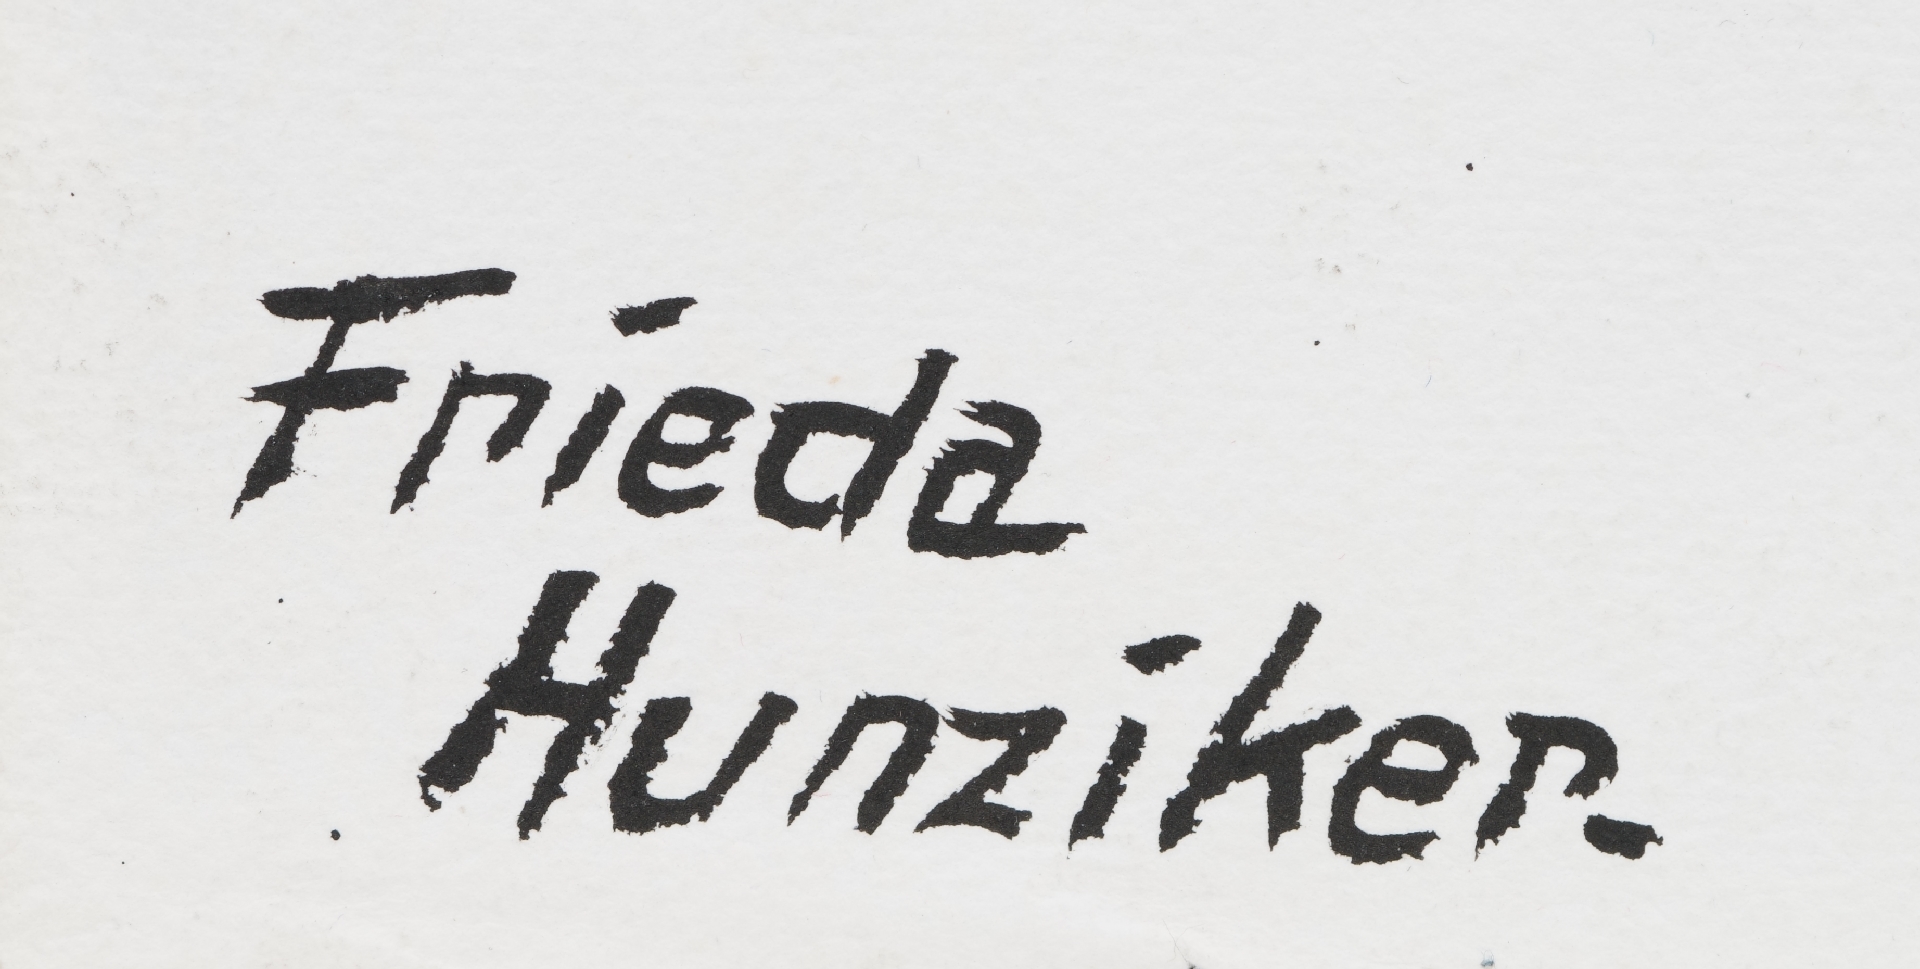 Frieda
Hunziker.